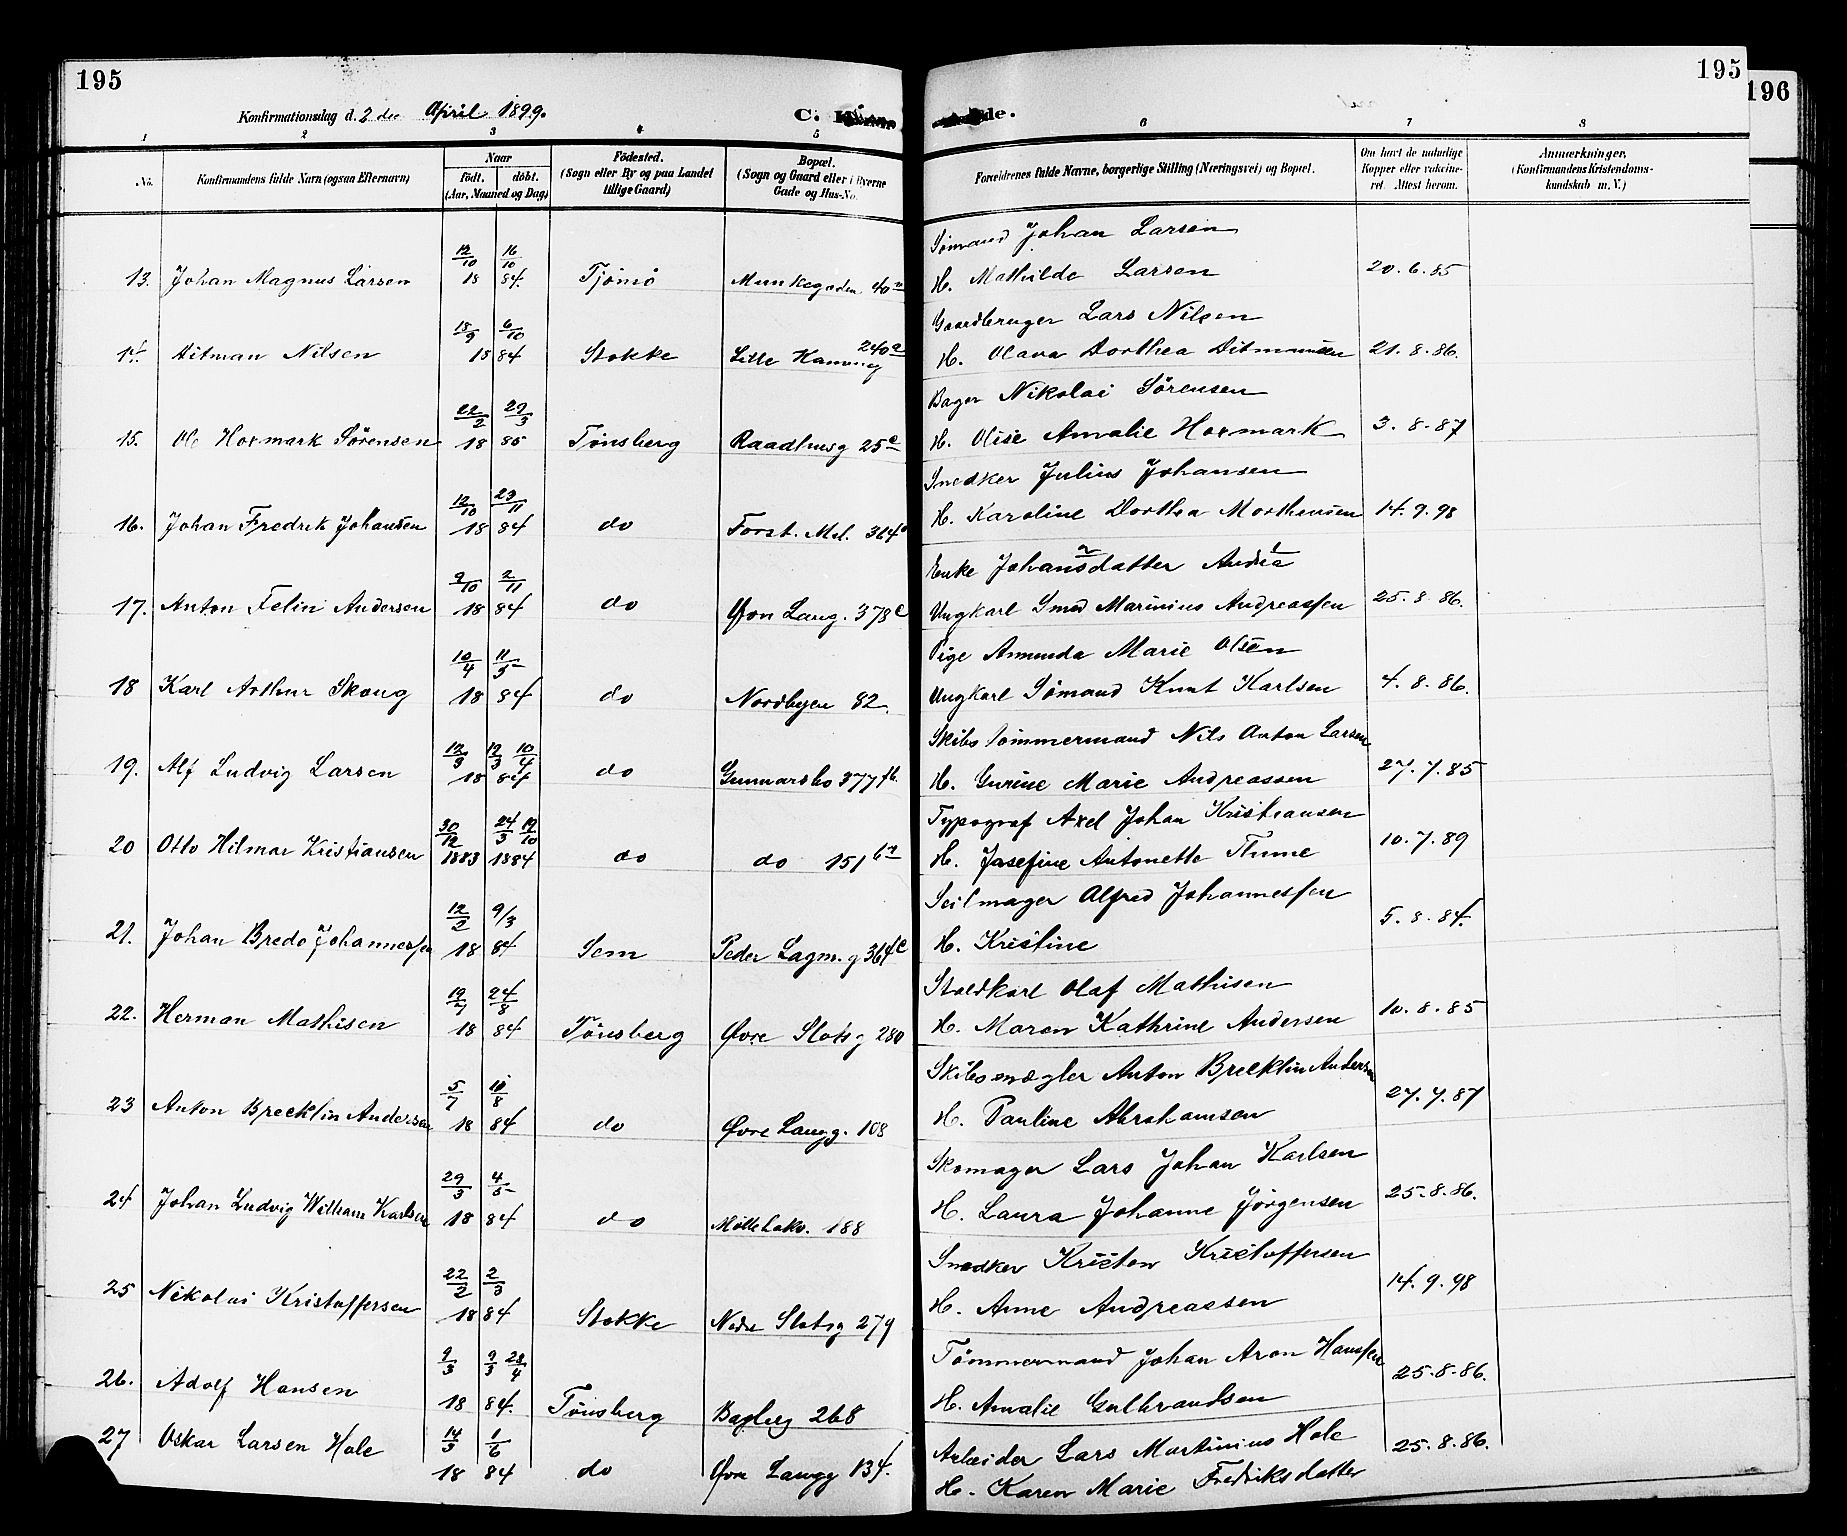 195
195
196
Konfirmationsdag d. 2 den April 1899.
C.
de.
1 2 3 4 5 6 7 8
No.
Konfirmandens fulde Navn (ogsaa Efternavn)
Naar
født. døbt.
(Aar, Maaned og Dag)
Fødested.
(Sogn eller By og paa Landet
tillige Gaard)
Bopæl.
(Sogn og Gaard eller i Byerne
Gade og Hus-No.
Forældrenes fulde Navne, borgerlige Stilling (Næringsvei) og Bopæl.
Om havt de naturlige
Kopper eller vaccine-
ret. Attest herom.
Anmærkninger.
(Konfirmandens Kristendoms-
kundskab m. V.)
Sømand Johan Larsen
12/10 16/10
13. Johan Magnus Larsen 18 84. Tjømø Munkegaden 40 H. Mathilde Larsen 20.6.85
Gaardbruger Lars Nilsen
18/9 6/10
14. Ditman Nilsen 18 84 Stokke Lille 240a H. Olava Dorthea Ditmansen 21.8.86.
Bager Nikolai Sörensen
22/2 29/3
15. Ole Hoxmark Sörensen 18 85 Tønsberg Raadhusg 25e H. Olise Amalie Hoxmark 3.8.87
Snedker Julius Johansen
12/10 23/11
16. Johan Fredrik Johansen 18 84 do Forst. Mel. 364 H. Karoline Dorthea Morthensen 14.9.98
Enke Johansdatter Andrea
9/10 2/11
17. Anton Felin Andersen 18 84 do Øvn Lang. 378c Ungkarl Smed Marinius Andreassen 25.8.86.
Pige Amunda Marie Olsen
10/4 11/5
18 Karl Arthur Skoug 18 84 do Nordbyen 82. Ungkarl Sømand Knut Karlsen 4.8.86.
Skibstømmermand Nils Anton Larsen
12/3 12/3 10/4
19. Alf Ludvig Larsen 18 84 do Gunnarsbo 377 H. Gurine Marie Andreassen 27.7.85
Typograf Axel Johan Kristiansen
30/12 24/3 19/10
20 Otto Hilmar Kristiansen 1883 1884 do do 151 H. Josefine Antonette Thime 10.7.89
Seilmager Alfred Johannessen
12/2 9/3
21. Johan Bredo Johannessen 18 84 Sem Peder Lagm. g 364c H. Kristine 5.8.84.
Staldkarl Olaf Mathisen
19/7 24/8
22. Herman Mathisen 18 84 Tønsberg Øvre Slotsg 280 H. Maren Kathrine Andersen 10.8.85
Skibsmægler Anton Brecklin Andersen
5/7 10/8
23 Anton Brecklin Andersen 18 84 do Øvre Langg. 108 H. Pauline Abrahamsen 27.7.87
Skomager Lars Johan Karlsen
29/3 4/5
24 Johan Ludvig Wilhelm Karlsen 18 84 do Møllebakv. 188 H. Laura Johanne Jörgensen 25.8.86.
Snedker Kristen Kristoffersen
22/2 2/3
25 Nikolai Kristoffersen 18 84 Stokke Nedre Slotsg 279 H. Anne Andreassen 14.9.98
Tömmermand Johan Aron Hanssen
9/3 9/3 28/4
26. Adolf Hansen 18 84. Tønsberg Bagbyg 268 H. Amalie Gulbrandsen 25.8.86.
14/3 1/6
27 Oskar Larsen Hole 18 84 do Øvre Langg 134. Arbeider Lars Martinius Hole 25.8.86.
H. Karen Marie Fredriksdatter